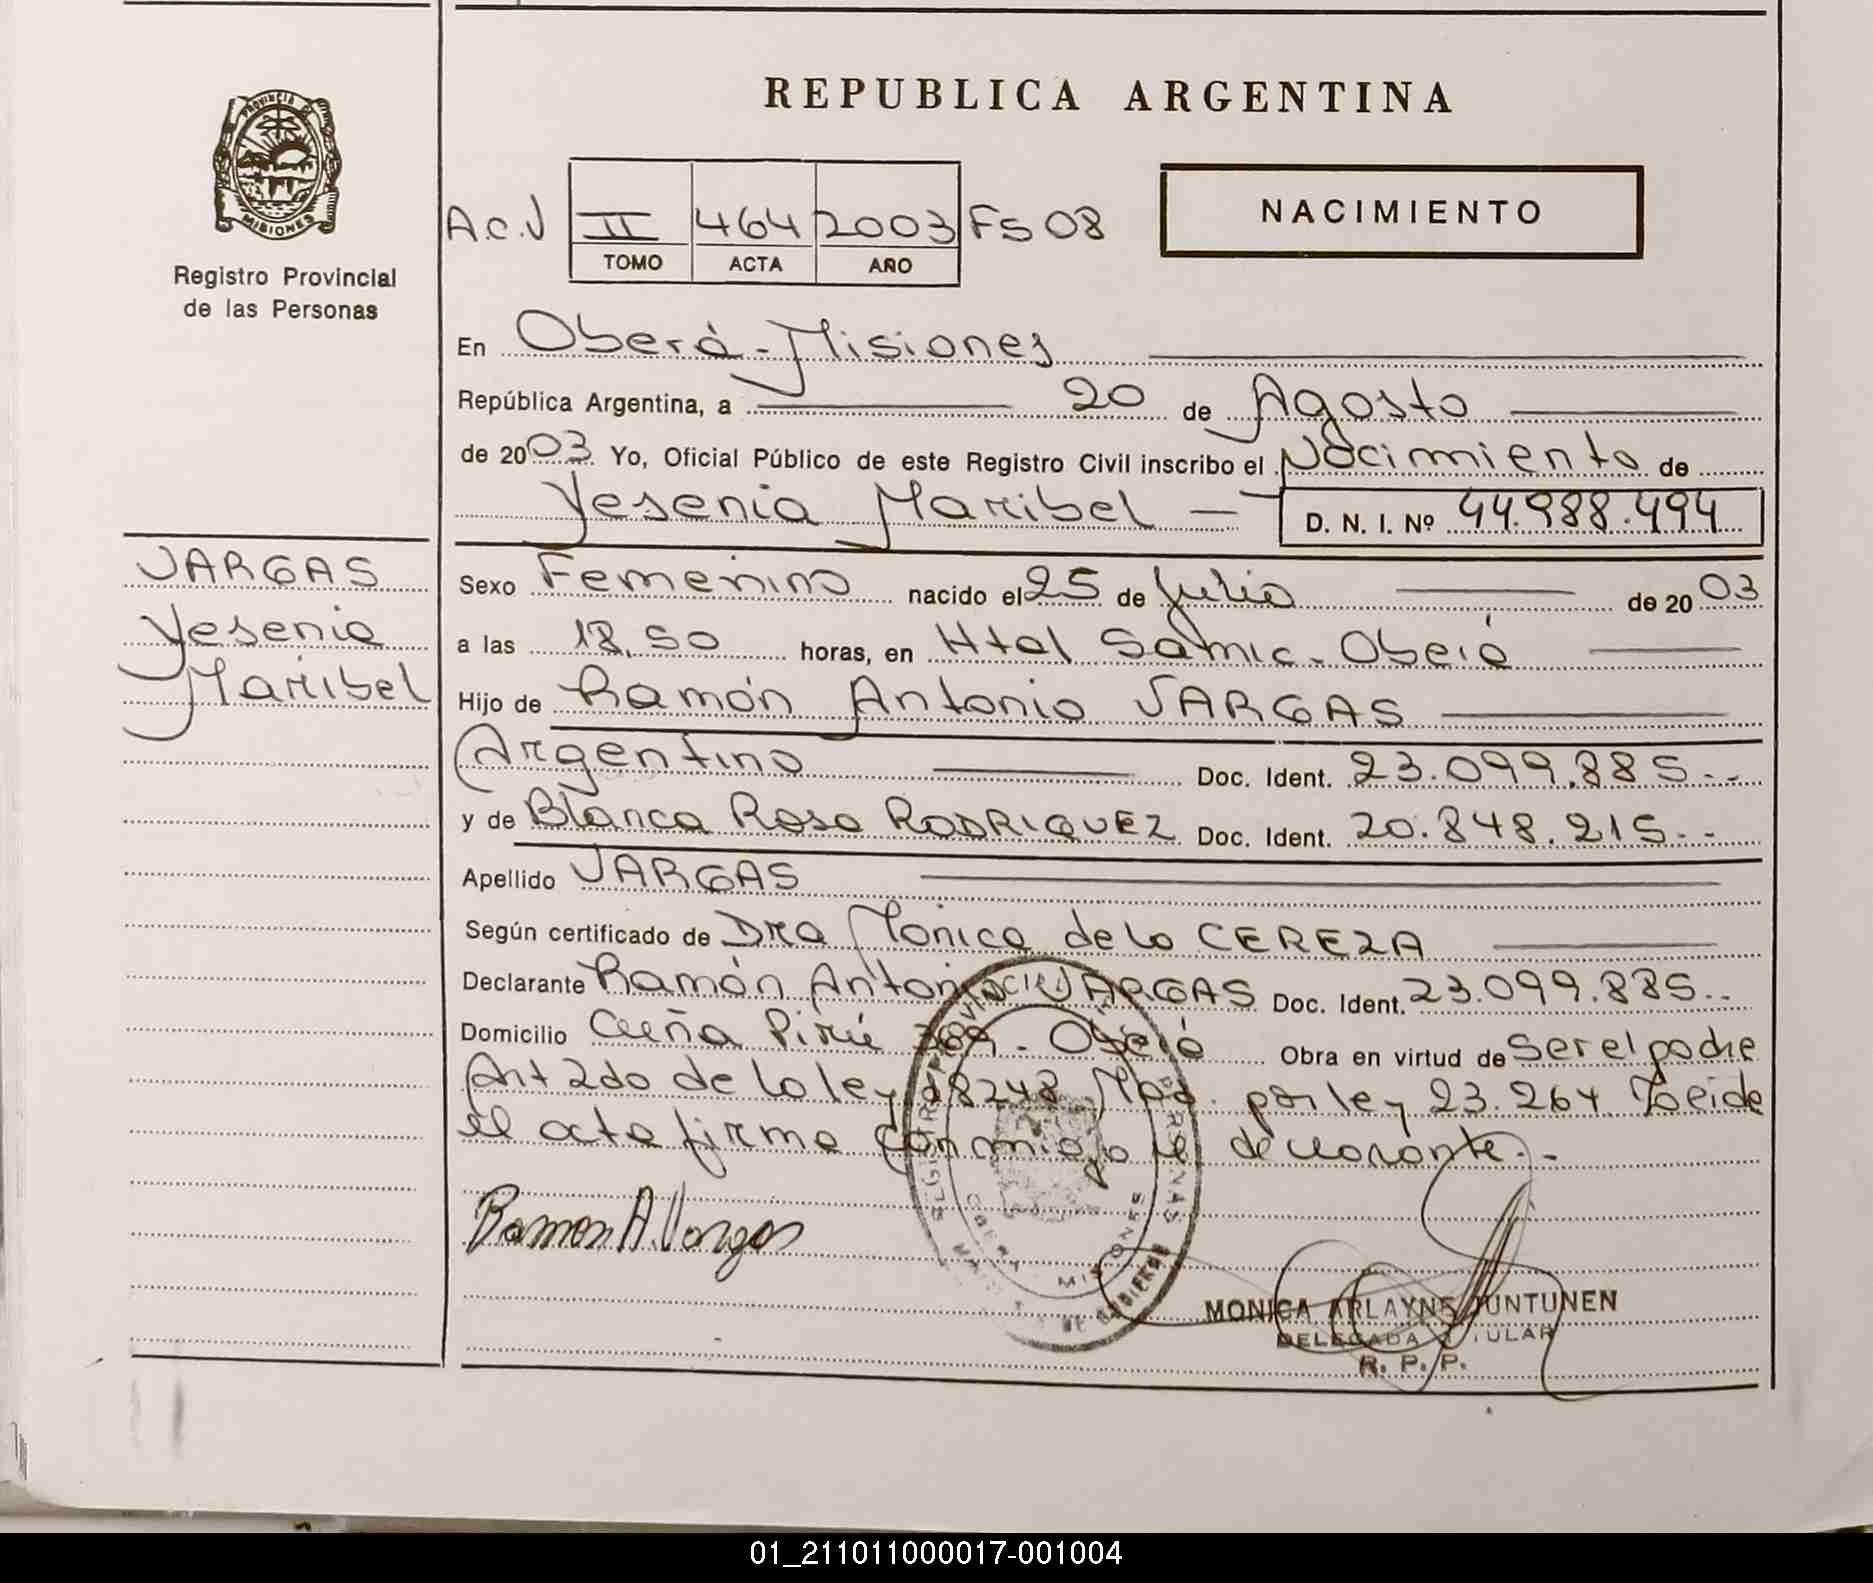 REPUBLICA ARGENTINA
PROVINCIA DE
MISIONES
Registro Provincial
de las Personas
A.C.V II 464 2003 FS 08
TOMO ACTA AÑO
NACIMIENTO
En Oberá - Misiones
República Argentina, a 20 de Agosto
de 2003 Yo, Oficial Público de este Registro Civil inscribo el Nacimiento de
Yesenia Maribel — D. N. I. Nº 44.988.494
VARGAS
Yesenia
Maribel
Sexo Femenino nacido el 25 de Julio de 2003
a las 18,50 horas, en Htal Samic - Oberá
Hijo de Ramón Antonio VARGAS
Argentino Doc. Ident. 23.099.885.--
y de Blanca Rosa RODRIGUEZ Doc. Ident. 20.848.215.--
Apellido VARGAS
Según certificado de Dra Monica de la CEREZA
Declarante Ramón Antonio VARGAS Doc. Ident. 23.099.885..
Domicilio Cuña Pirú - Oberá Obra en virtud de Ser el padre
Art 2do de la ley 18248 Mod. por ley 23.264 Leída
el acta firma conmigo el declarante.-
Ramon A. Vargas
MISIONES
MONICA ARLAYNE JUNTUNEN
DELEGADA TITULAR
R. P. P.
01_211011000017-001004